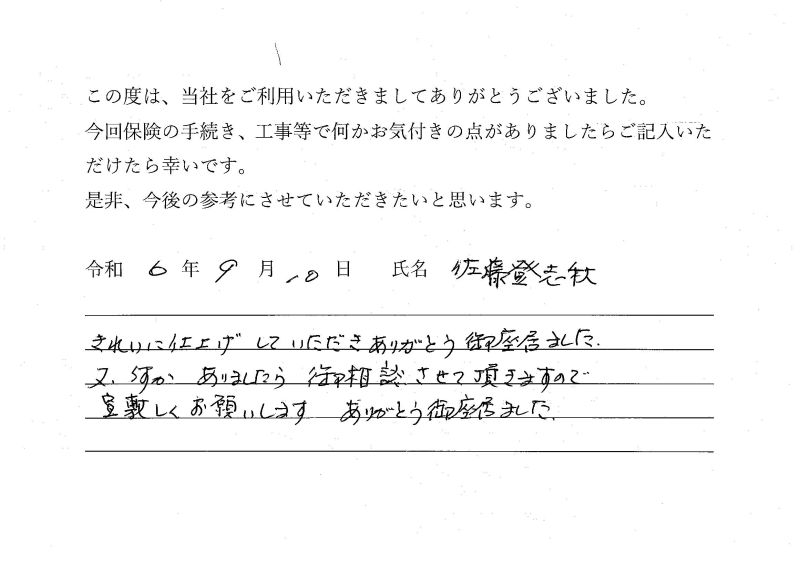 この度は、当社をご利用いただきましてありがとうございました。
今回保険の手続き、工事等で何かお気付きの点がありましたらご記入いた
だけたら幸いです。
是非、今後の参考にさせていただきたいと思います。
令和 6 年 9 月 10 日 氏名 佐藤登志秋
きれいに仕上げしていただきありがとう御座居ました.
又、 ありましたら 御相談させて頂きますので
宜敷しくお願いします ありがとう御座居ました.